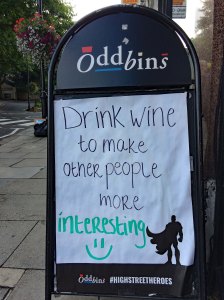 Oddbins
Drink wine
to make
other people
more
interesting
Oddbins #HIGHSTREETHEROES